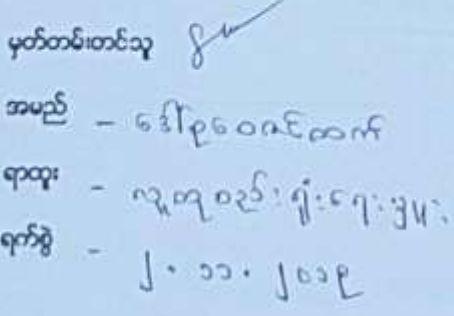 မှတ်တမ်းတင်သူ
အမည် - ဒေါ်ဥဝေဇင်ထက်
ရာထူး - လူထုစည်းရုံးရေးမှူး
ရက်စွဲ - ၂.၁၁.၂၀၁၉